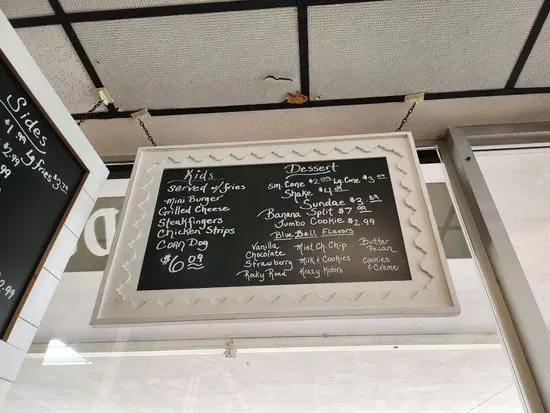 Sides
$1.99 Lg fries $3.
$2.99
2.99
Kids
Served w/ fries
Mini Burger
Grilled Cheese
Steakfingers
Chicken Strips
Corn Dog
$6.09
Dessert
Sm. Cone $2.09 Lg. Cone $3.09
Shake $4.
Sundae $3.
Banana Split $7.00
Jumbo Cookie $2.99
Blue Bell Flavors
Vanilla Mint Ch. Chip Butter Pecan
Chocolate
Strawberry Milk & Cookies Cookies & Creme
Rocky Road Krazy Kolors